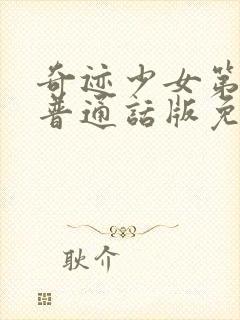 奇迹少女第
普通話版免
耿介